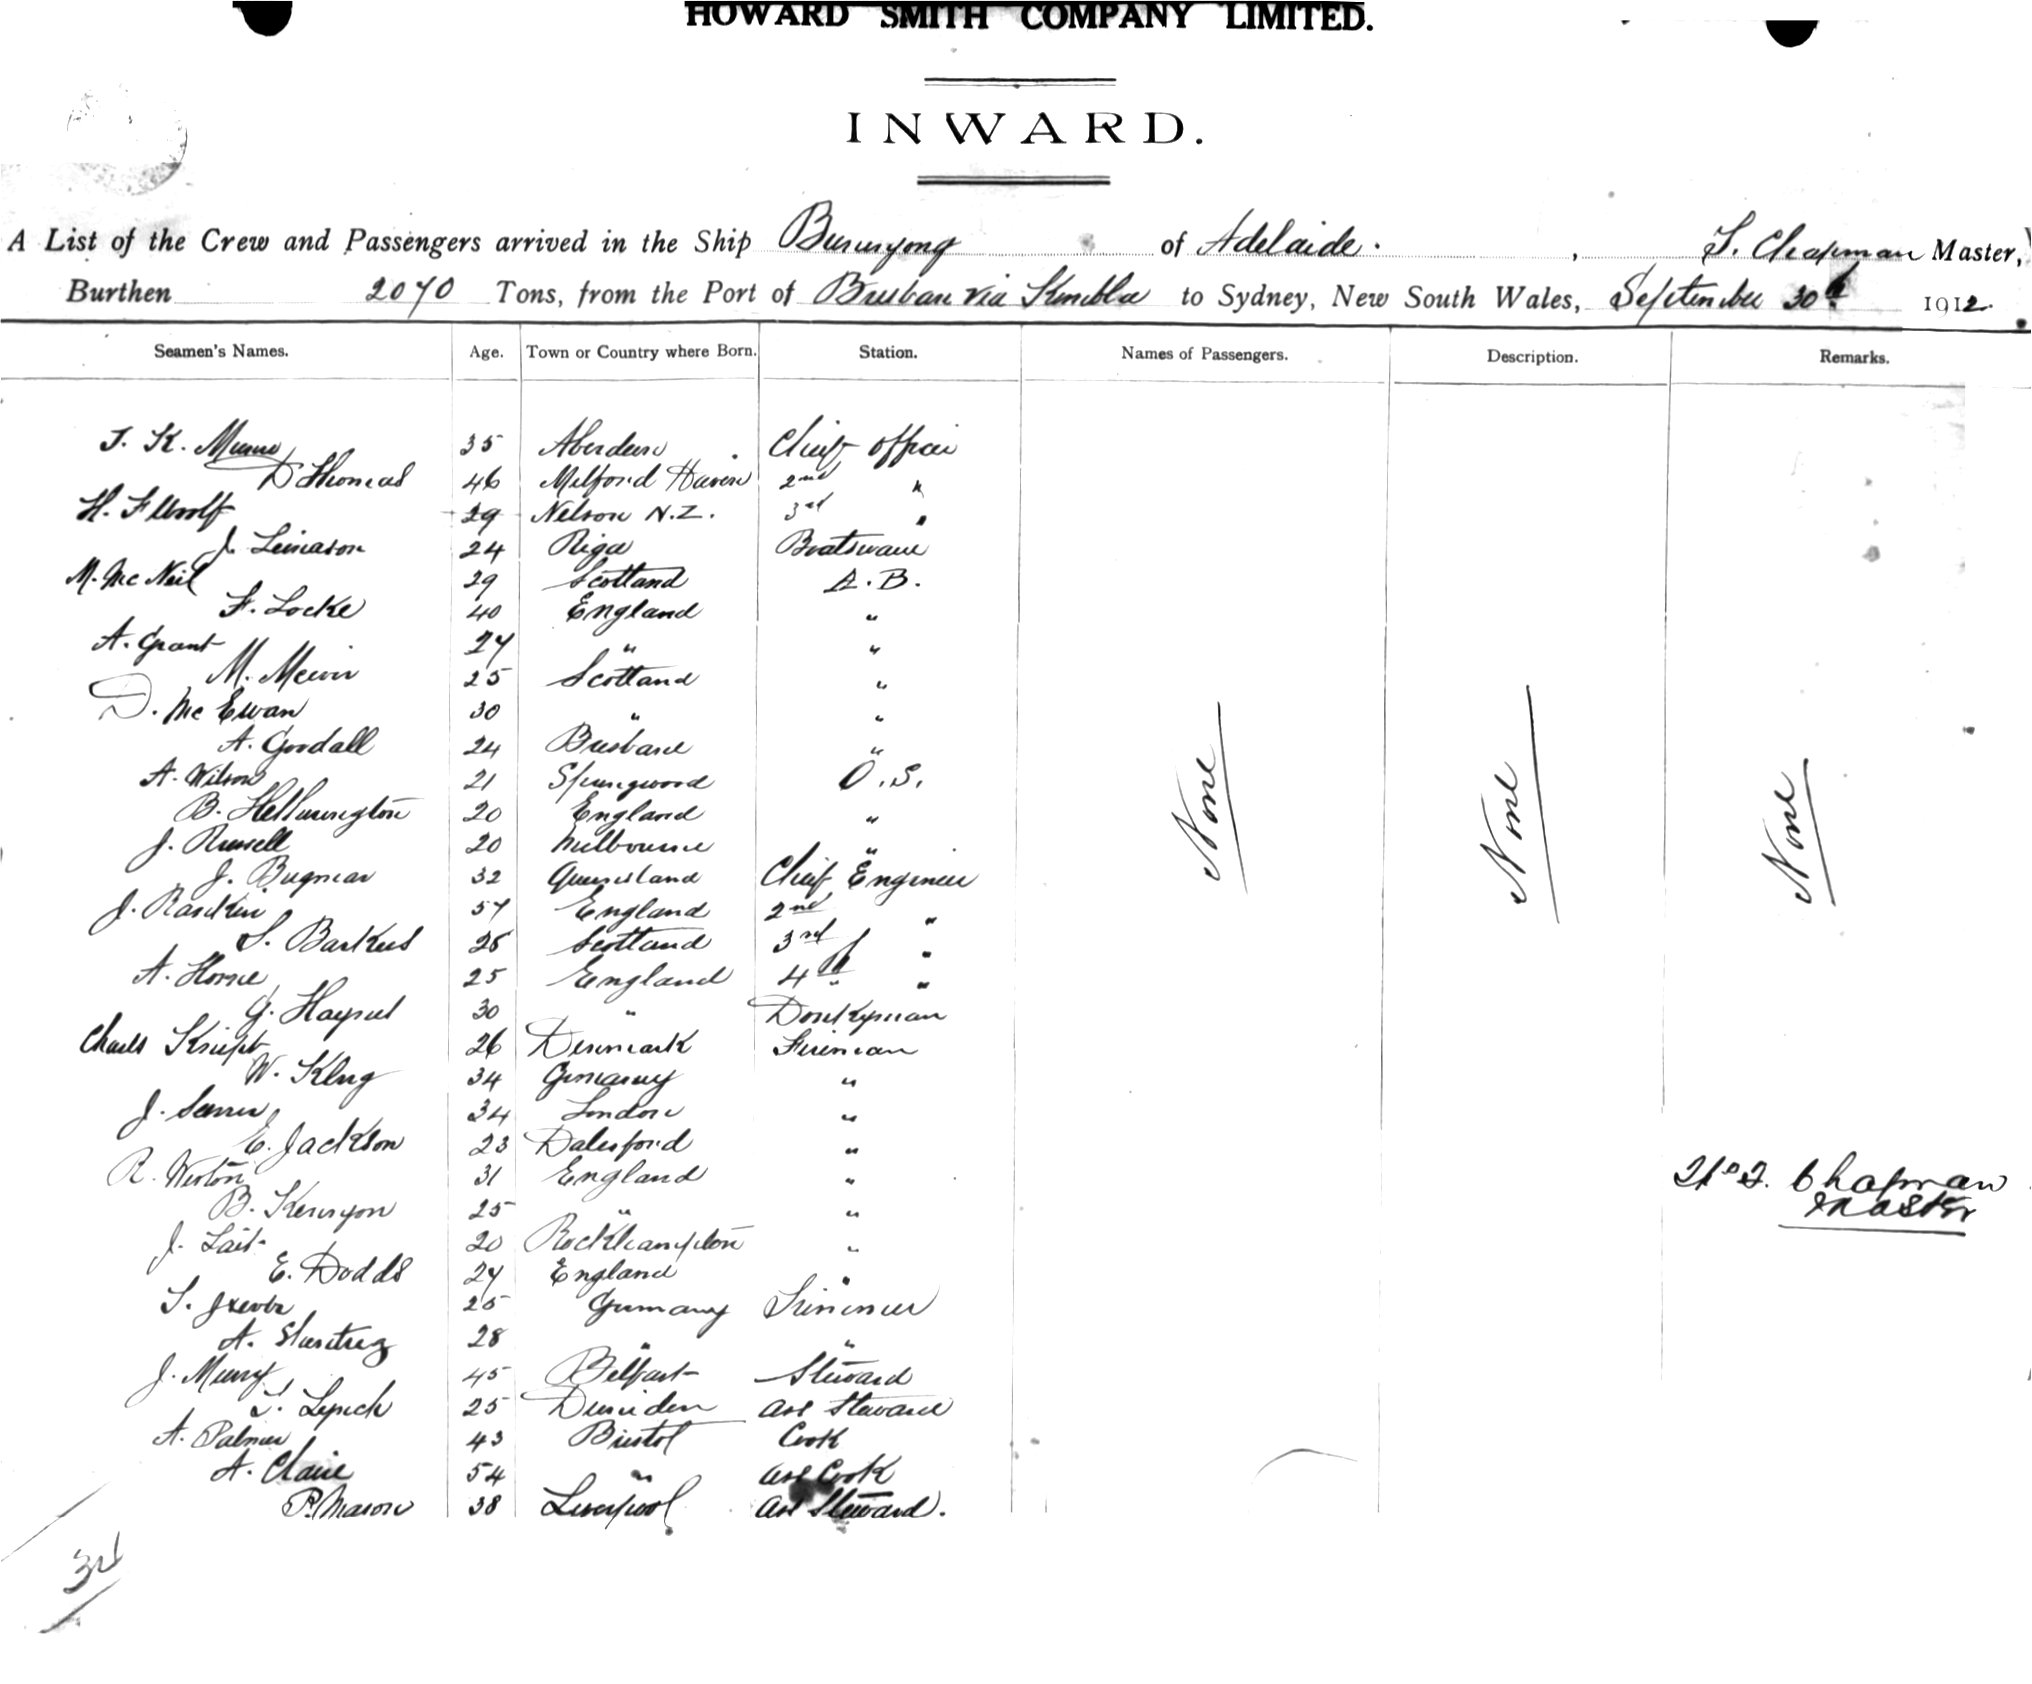 HOWARD SMITH COMPANY LIMITED.
INWARD.
A List of the Crew and Passengers arrived in the Ship Burunyong of Adelaide. , T. Chapman Master,
Burthen 2070 Tons, from the Port of Brisbane via Kembla to Sydney, New South Wales, September 30th 1912.
Seamen's Names. Age. Town or Country where Born. Station. Names of Passengers. Description. Remarks.
J. K. Munro 35 Aberdeen Chief Officer
D Thomas 46 Milford Haven 2nd "
H. F Woolf 29 Nelson N.Z. 3rd "
J. 24 Riga Boatswain
M. Mc Neil 29 Scotland A.B.
F. Locke 40 England "
A. Grant 27 " "
M. 25 Scotland "
D. Mc Ewan 30 " "
A. Goodall 24 Brisbane "
A. Wilson 21 Springwood O.S.
B. Hetherington 20 England "
J. Russell 20 Melbourne "
J. 32 Queensland Chief Engineer
J. Rankin 57 England 2nd "
S. 26 Scotland 3rd "
A. Horne 25 England 4th "
G. Haynes 30 " Donkyman
Charles 26 Denmark Fireman
W. Klug 34 Germany "
J. 34 London "
E. Jackson 23 Dalesford "
R. 31 England "
B. Kennyon 25 " "
J. Lait 20 Rockhampton "
E. Dodds 27 England "
S. 25 Germany Trimmer
A. 28 " "
J. Murry 45 Belfast Steward
T. 25 Dunedin Ass Steward
A. Palmer 43 Bristol Cook
A. Claire 54 " Ass Cook
P. Mason 38 Liverpool Ass Steward.
None None None
Chapman
Master